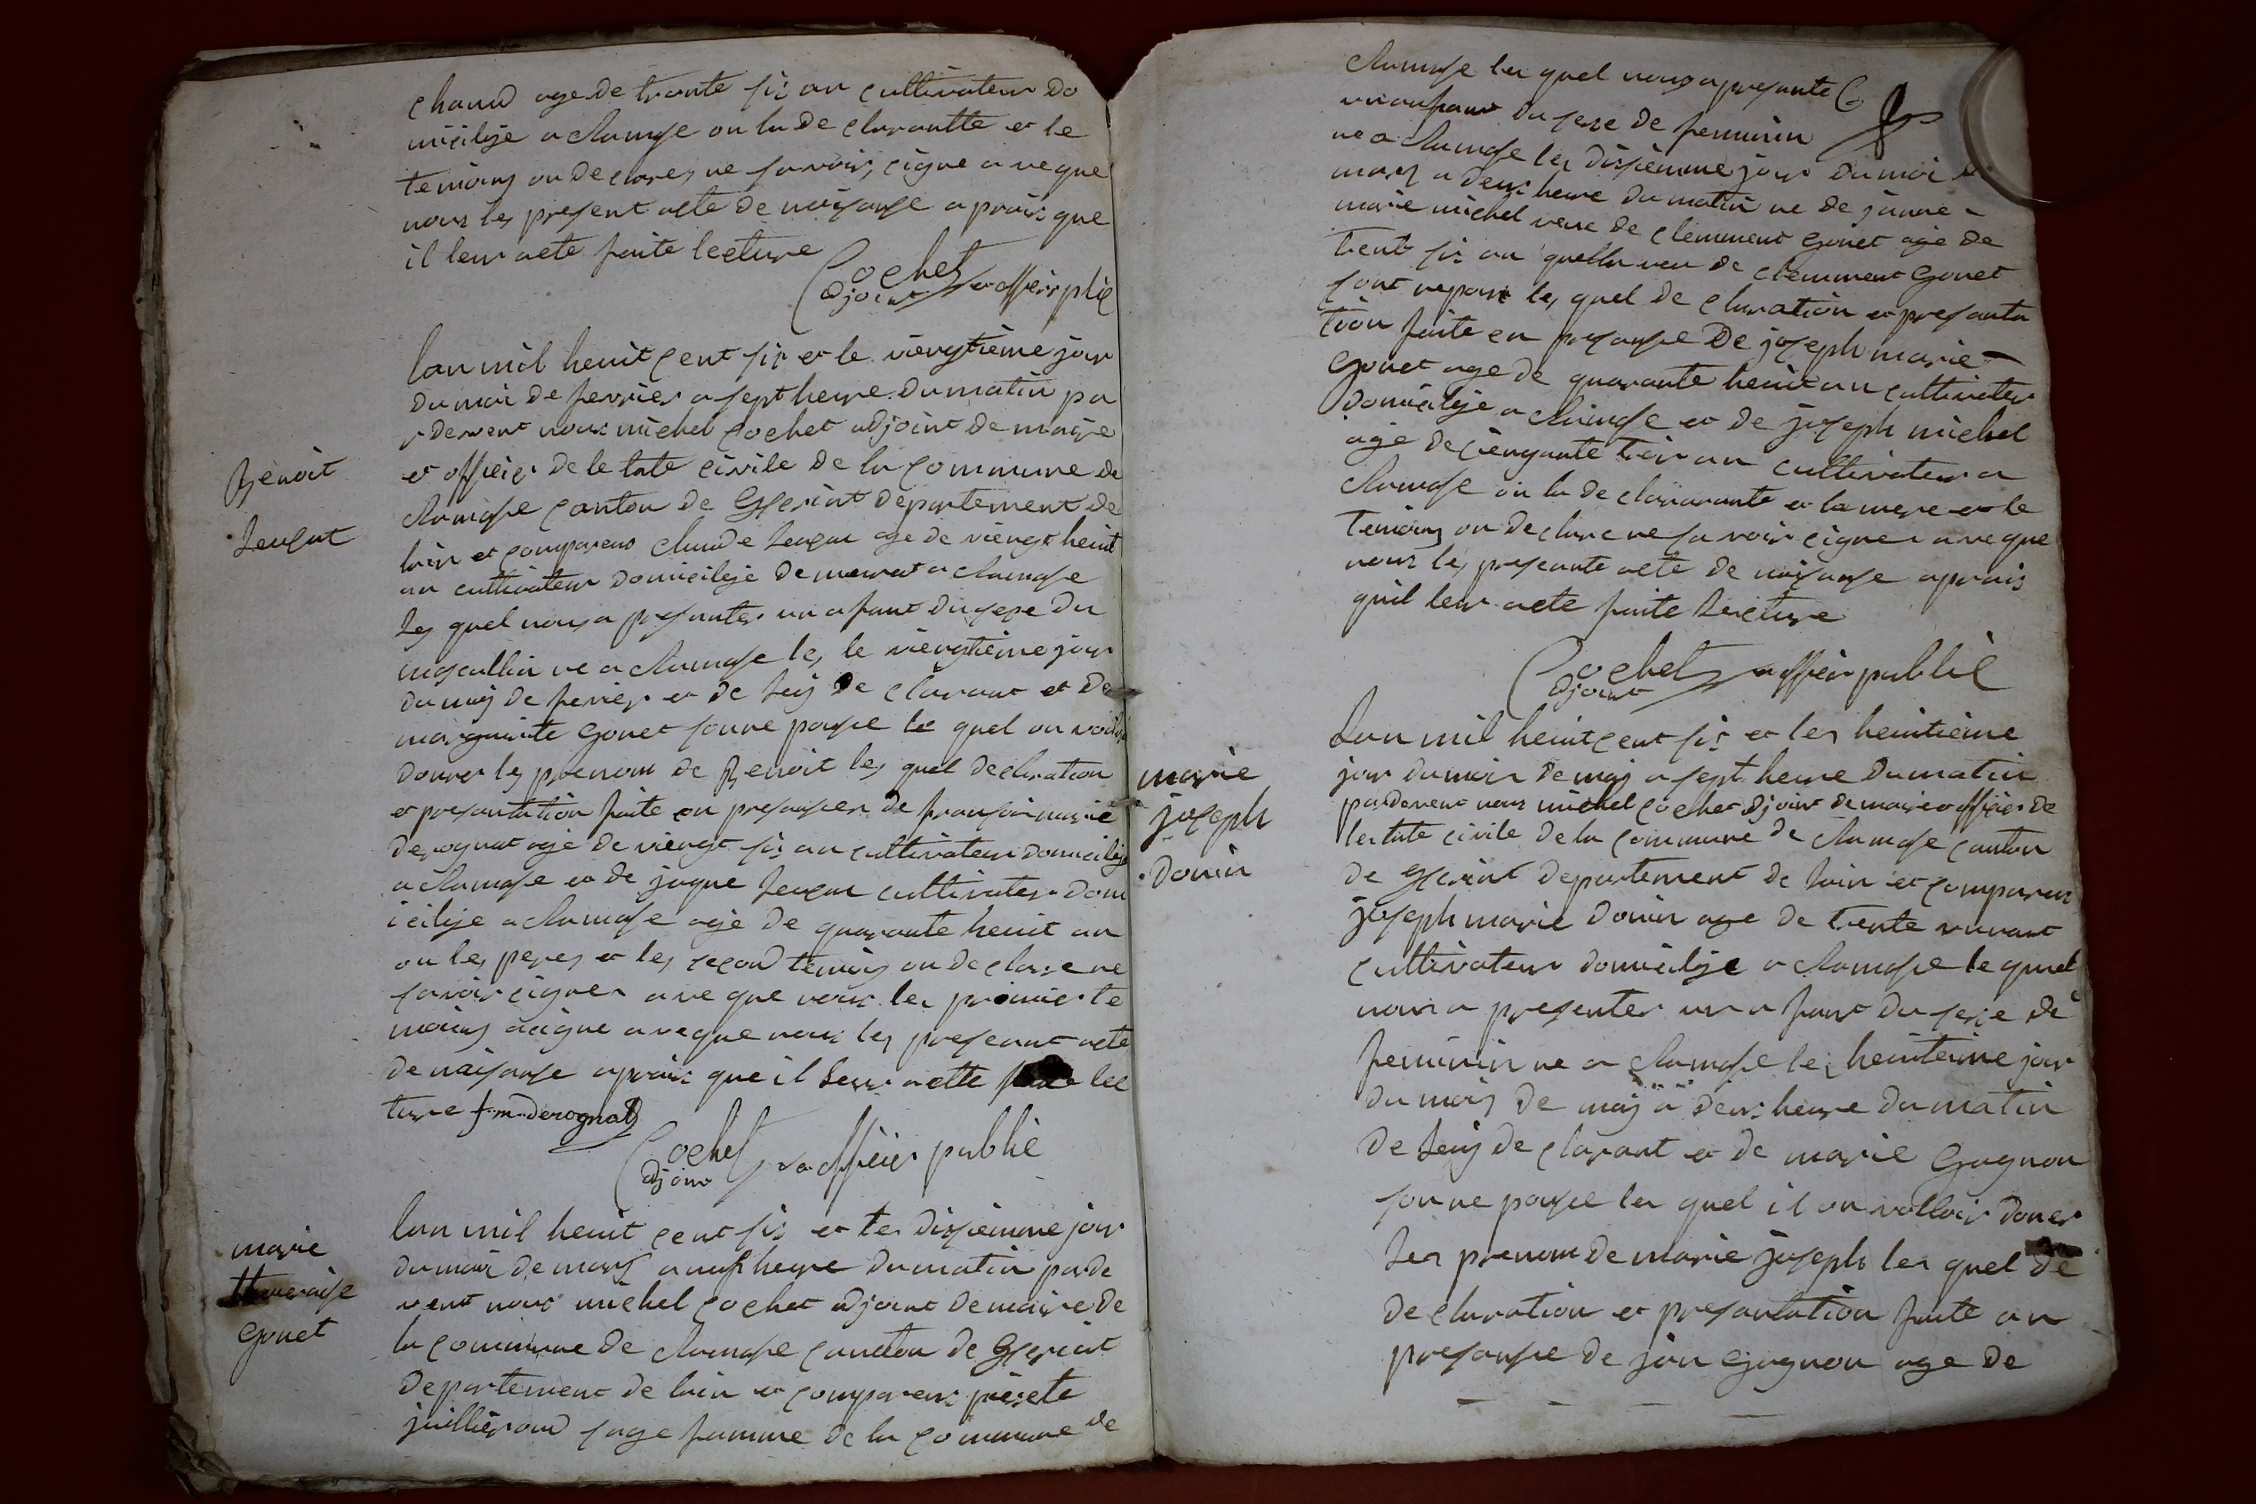 chaud age de trante six an cultivateur do
micilije a chamose on la de clarantte et le
temoins on de clares ne savoir cigne a ve que
nous les present acte de naisanse a prais que
il leur a ete faite lecture
Cochet
adjoint et officier
lan mil heuit cent six et le viengtieme jour
du moi de fevrier a sept heure du matin pa
r devent nous michel Cochet adjoint de maire
et officier de le tate civile de la commune de
Benoit
chamose canton de departement de
lain et comparens claude age de viengt heuit
an cultivateur domicilije demeurat a chamose
les quel nous a presanter un a fant du sexe du
mascullin ne a chamose les le viengtieme jour
du mois de fevrier et de luy de clarant et de
marguerite gouet sonne pouse le quel on
donner les prenom de Benoit les quel declaration
et presantation faite en presanser de fransoi marie
derognat age de viengt six an cultivateur domicilije
a chamose et de jaque cultivateur dom
icilije a chamose age de quarante heuit an
on les peres et les cecond temoins on de clare ne
savoir cigner a ve que nous les promier te
moins a cigne a veque nous les presant acte
de naisanse a prais que il leur a ette lec
ture f. m. derognat
Cochet
adjoint et officier publie
marie
gouet
lan mil heuit cent six et les dixiemme jour
du moi de mars a neuf heure du matin par de
vent nous michel cochet adjoint de maire de
la commune de chamose canton de
departement de lain et comparens
sage famme de la commune de
chamose les quel nous a presante
un anfant du sexe de feminin
ne a chamose les dixiemme jour du moi de
mars a deux heure du matin ne de
marie michel veuve de clemment gouet age de
trent six an quella veu de clemment gouet
les quel de claration et presanta
tion faite en presanse de joseph marie
gouet age de quarante heuit an cultivateur
domicilije a chamose et de joseph michel
age de cienquante troi an cultivateur a
chamose on la de clararante et la mere et le
temoins on de clare ne sa voir cigner a ve que
nous les presante acte de naisanse a prais
quil leur a ete faite lecture
Cochet
adjoint et officier publie
marie
joseph
donin
Lan mil heuit cent six et les heuitieme
jour du moi de may a sept heure du matin
par devent nous michel cochet adjoint de maire et officier de
les tate civile de la commune de chamose canton
de departement de lain et comparens
joseph marie donin age de trente
cultivateur domicilije a chamose le quel
nous a presenter un a fant du sexe de
feminin ne a chamose les heuitieme jour
du mois de may a deux heure du matin
de luy de clarant et de marie Gagnon
sonne pouse les quel il on volloir doner
les prenom de marie joseph les quel de
declaration et presantation faite an
presanse de jan gagnon age de